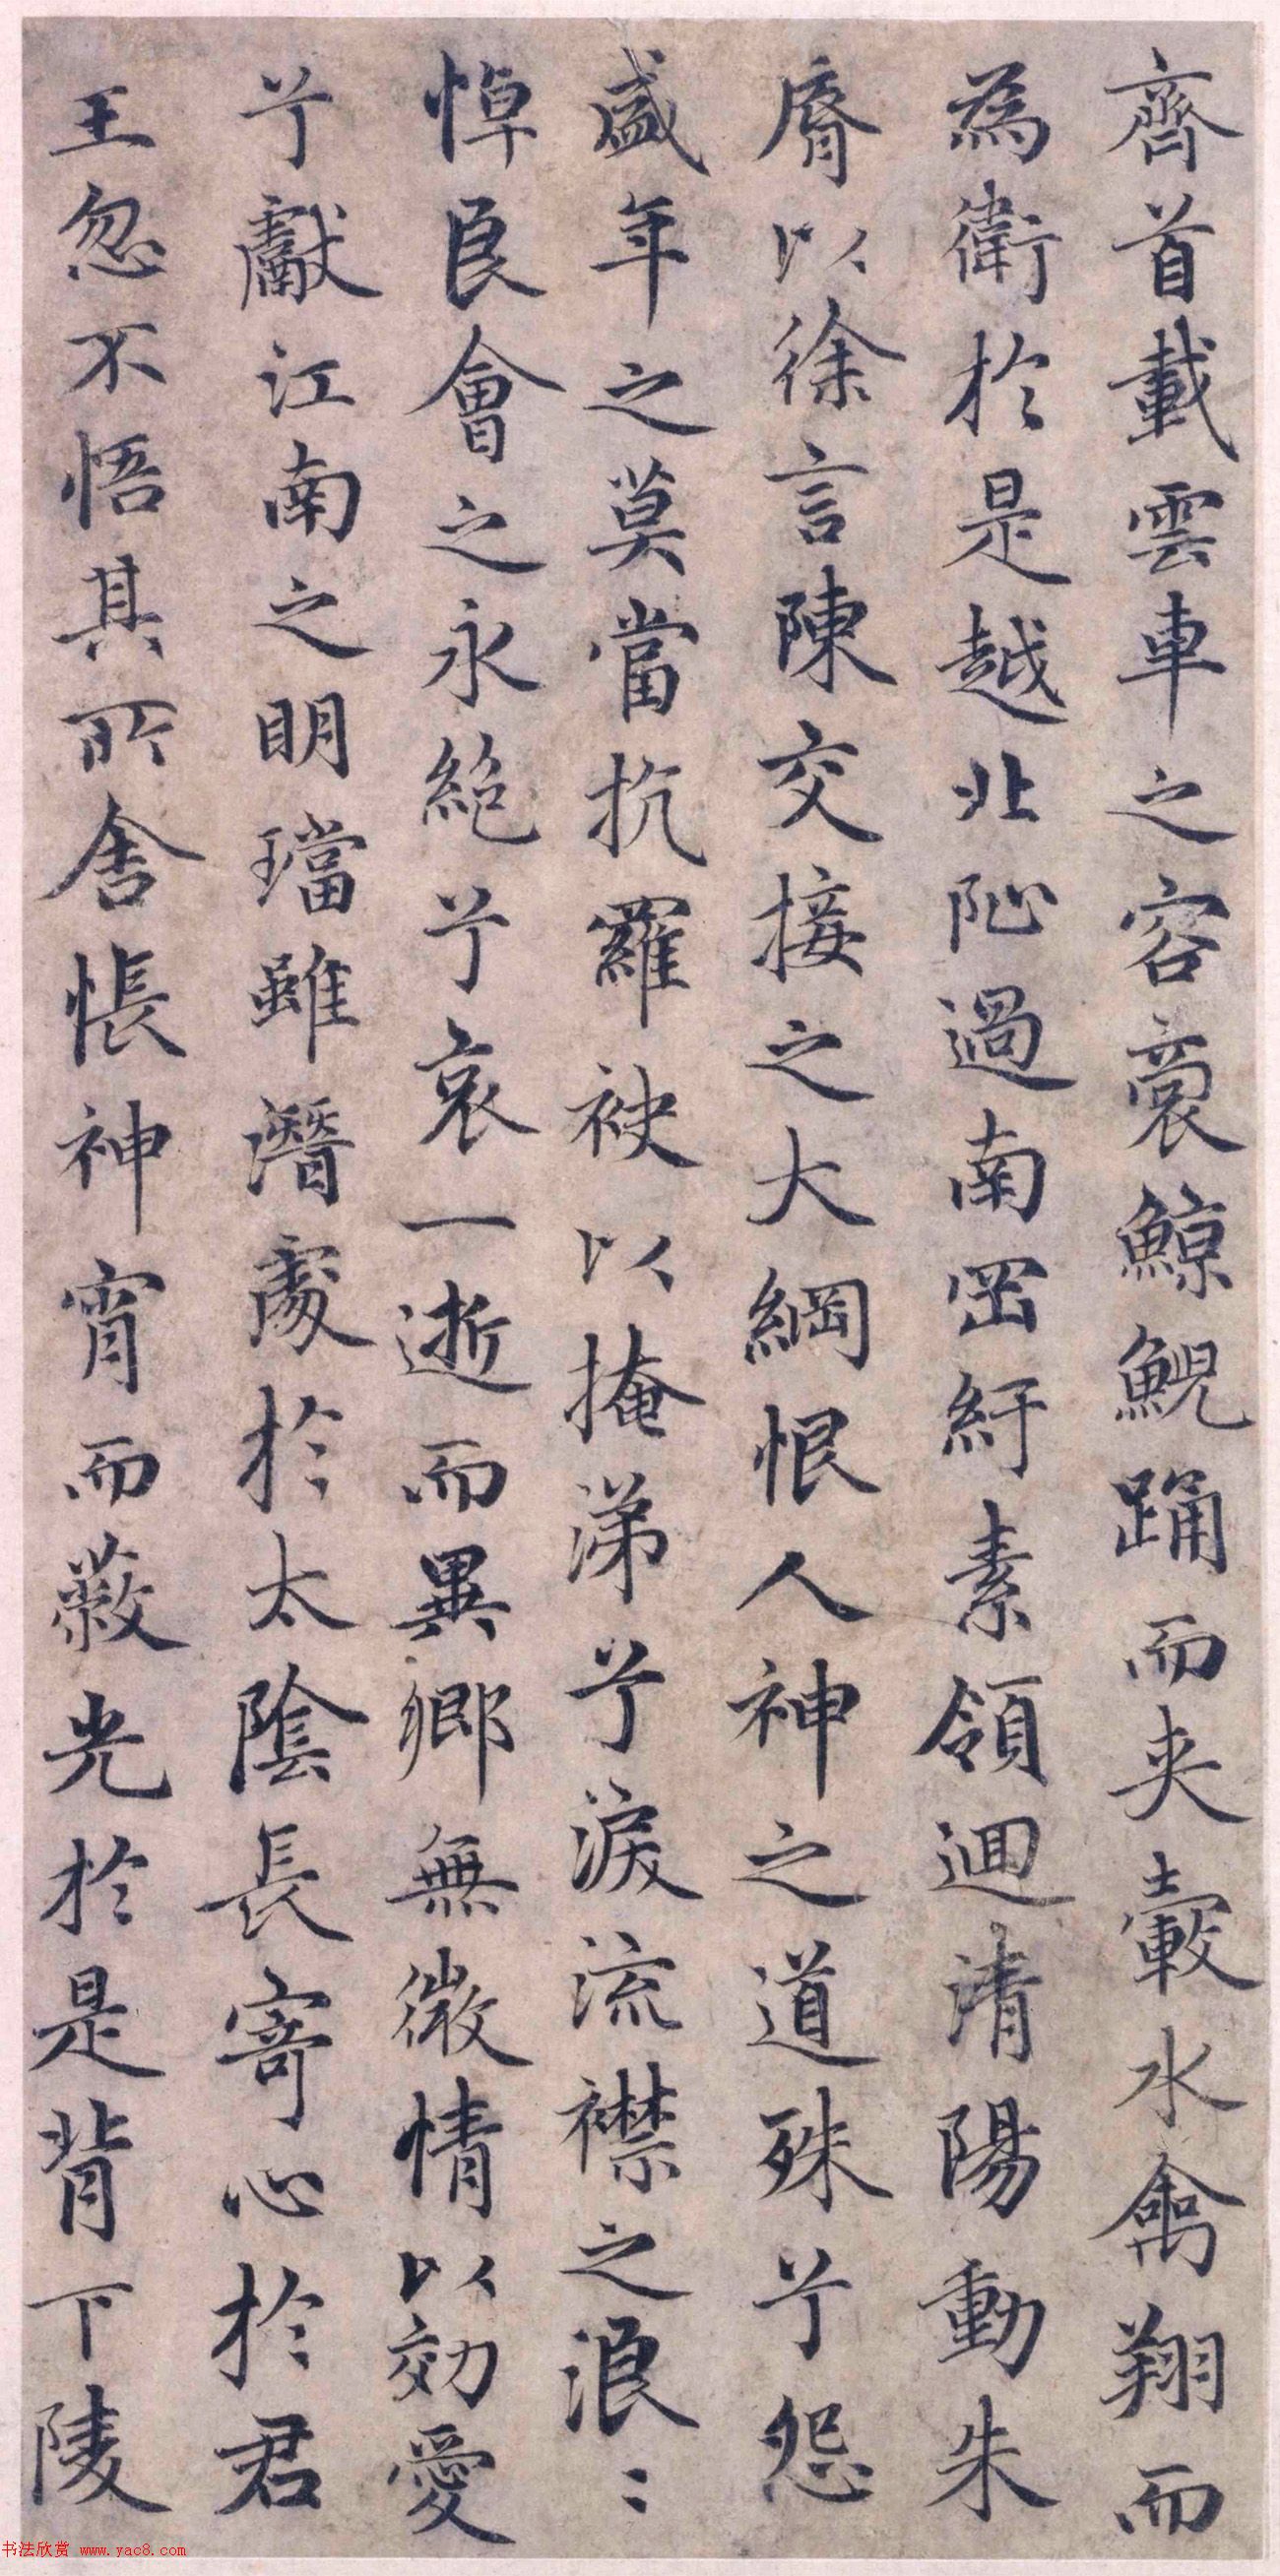 齊首載雲車之容裔鯨鯢踊而夾轂水禽翔而
為衛於是越北沚過南岡紆素領迴清陽動朱
脣以徐言陳交接之大綱恨人神之道殊兮怨
盛年之莫當抗羅袂以掩涕兮淚流襟之浪〻
悼良會之永絕兮哀一逝而異鄉無微情以效愛
兮獻江南之明璫雖潛處於太陰長寄心於君
王忽不悟其所舍悵神宵而蔽光於是背下陵
书法欣赏 www.yac8.com